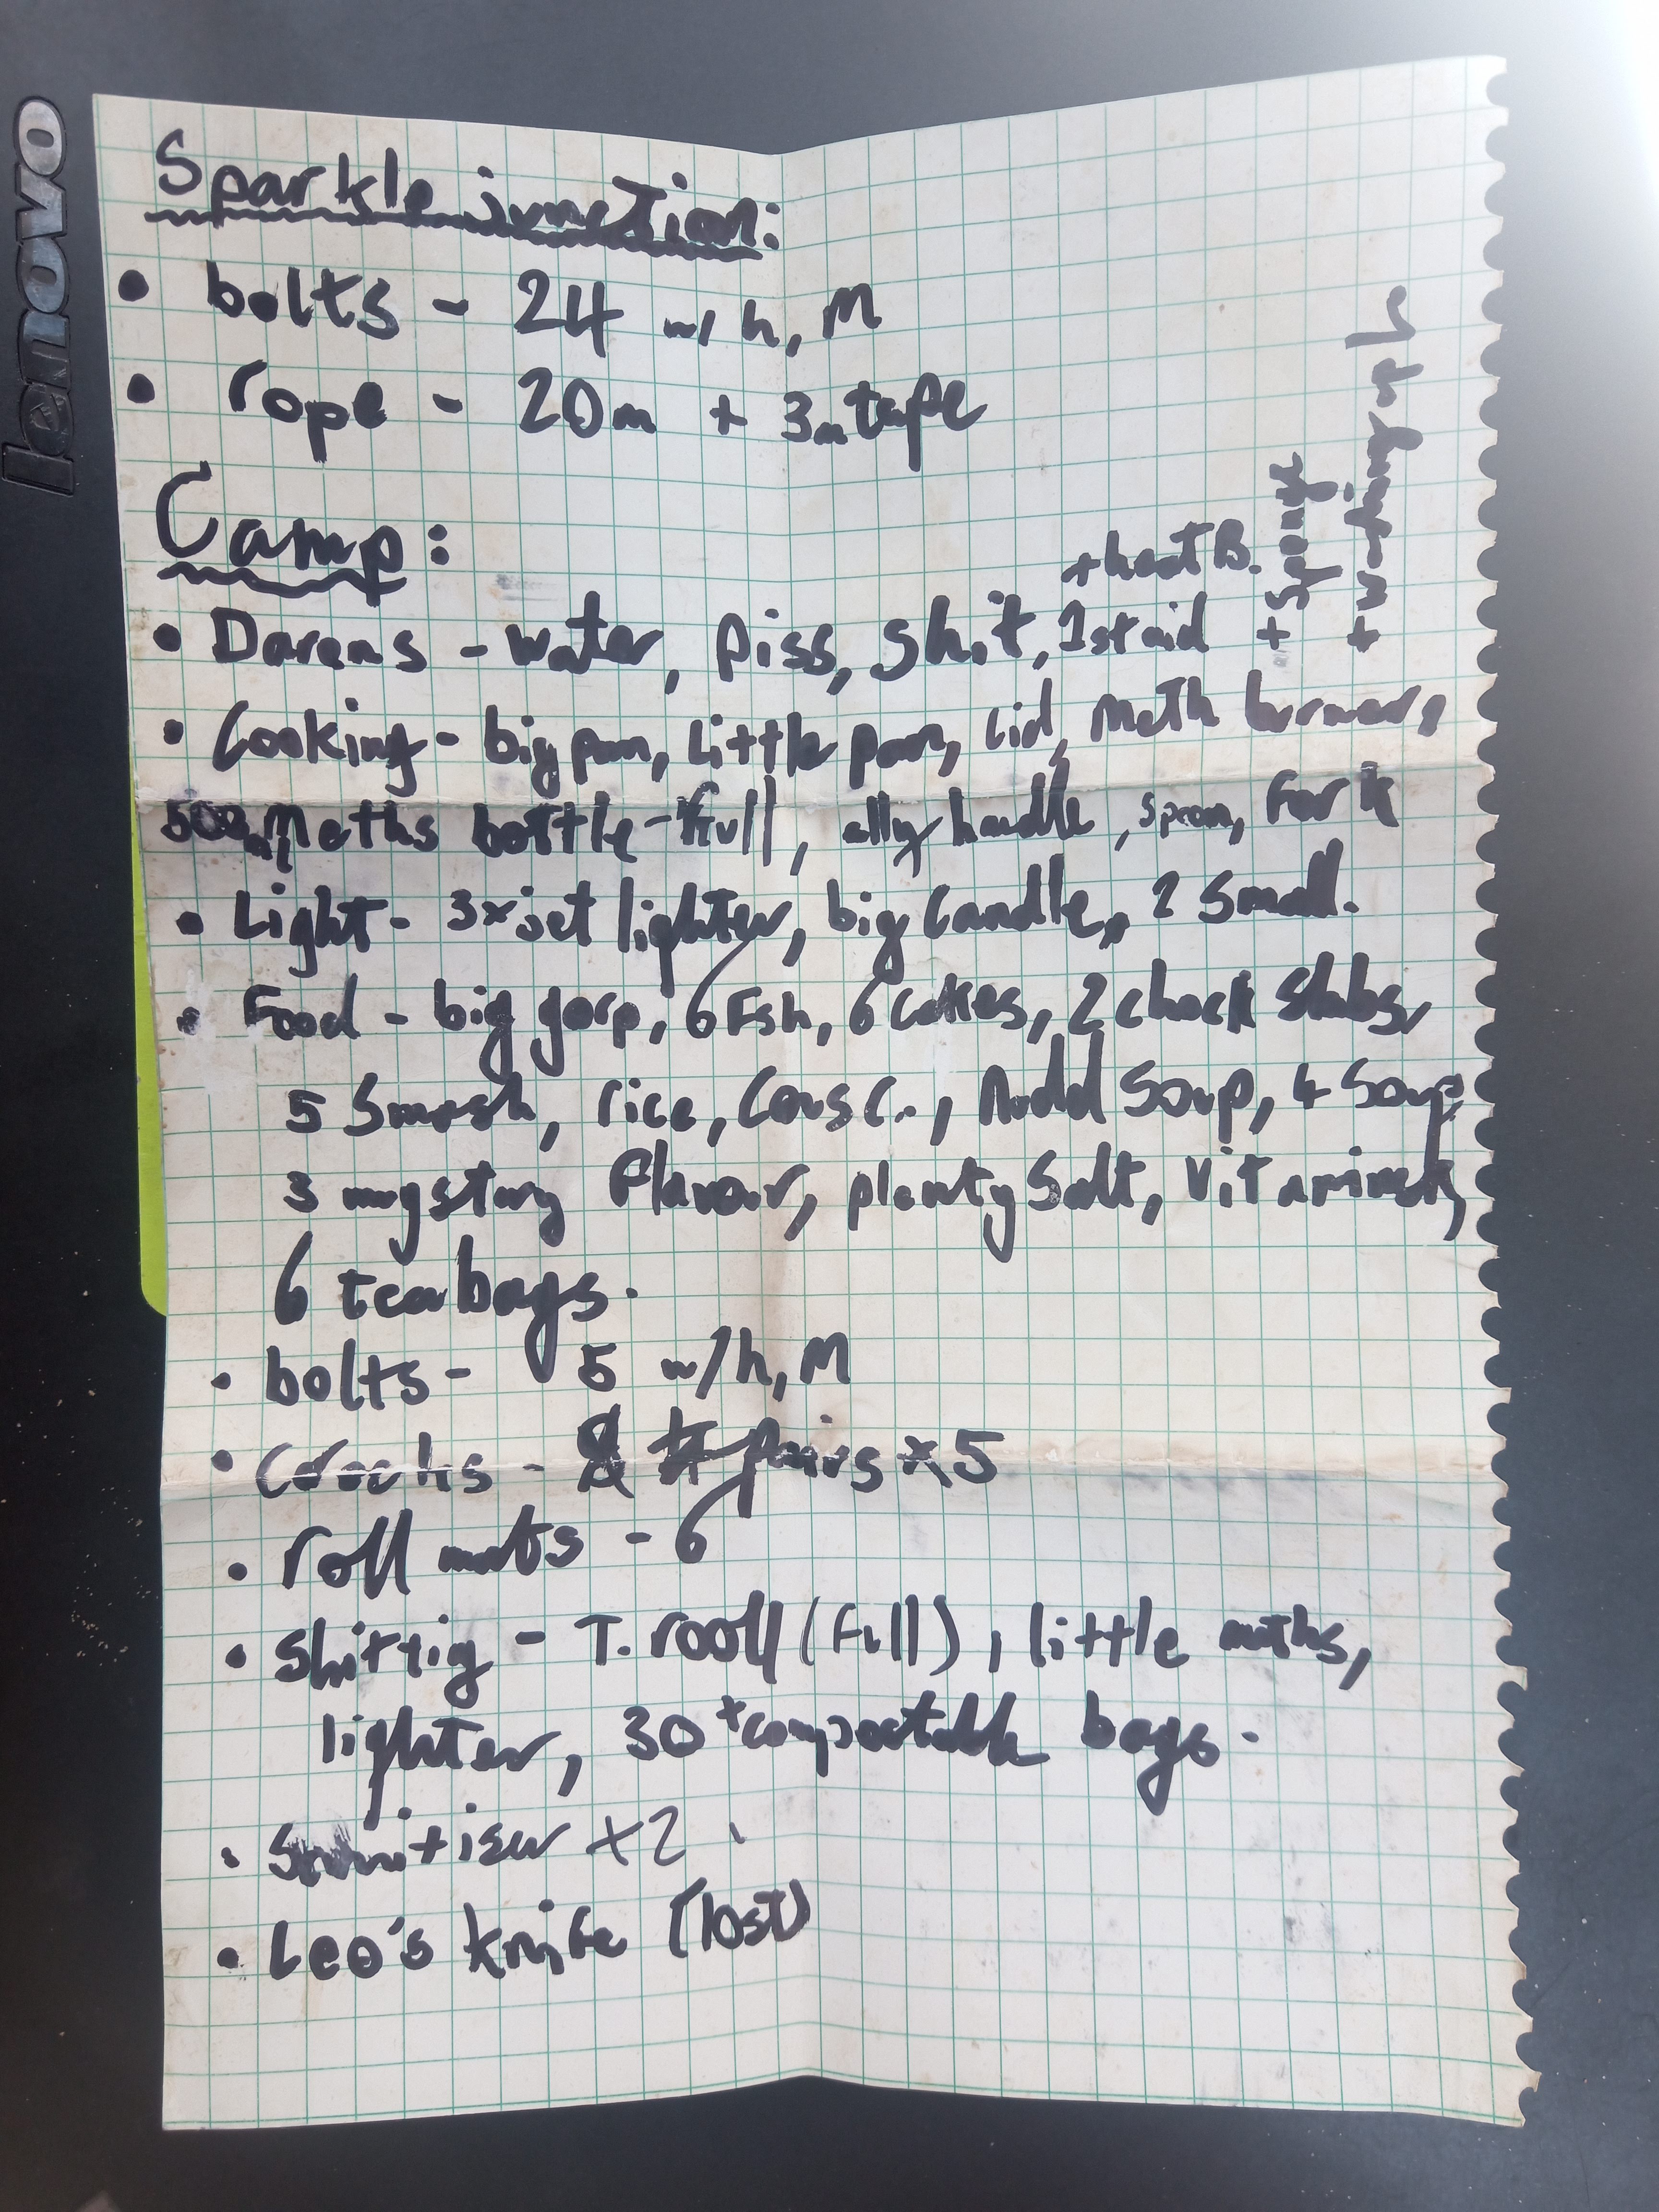 lenovo
Sparkle junction:
• bolts - 24 w/ h, M
• rope - 20m + 3m tape
Camp:
+ heat B.
+ Sponge
+ washing up
• Darens - water, piss, shit, 1st aid
• Cooking - big pan, Little pan, lid, Meth burner,
500ml Meths bottle - full, ally handle, spoon, Fork
• Light - 3x jet lighter, big Candle, 2 Small.
• Food - big gorp, 6 Fish, 6 Cakes, 2 chock Slabs,
5 Smash, rice, Cousc.., Nudd Soup, 4 Soup,
3 mystery Flavour, plenty Salt, Vitamins,
6 teabags.
• bolts - 5 w/h, M
• Crochs - pairs x 5
• roll mats - 6
• Shittig - T. rooll (Full), little meths,
lighter, 30+ compostable bags.
• Sanitiser x2
• Leo's knife (lost)